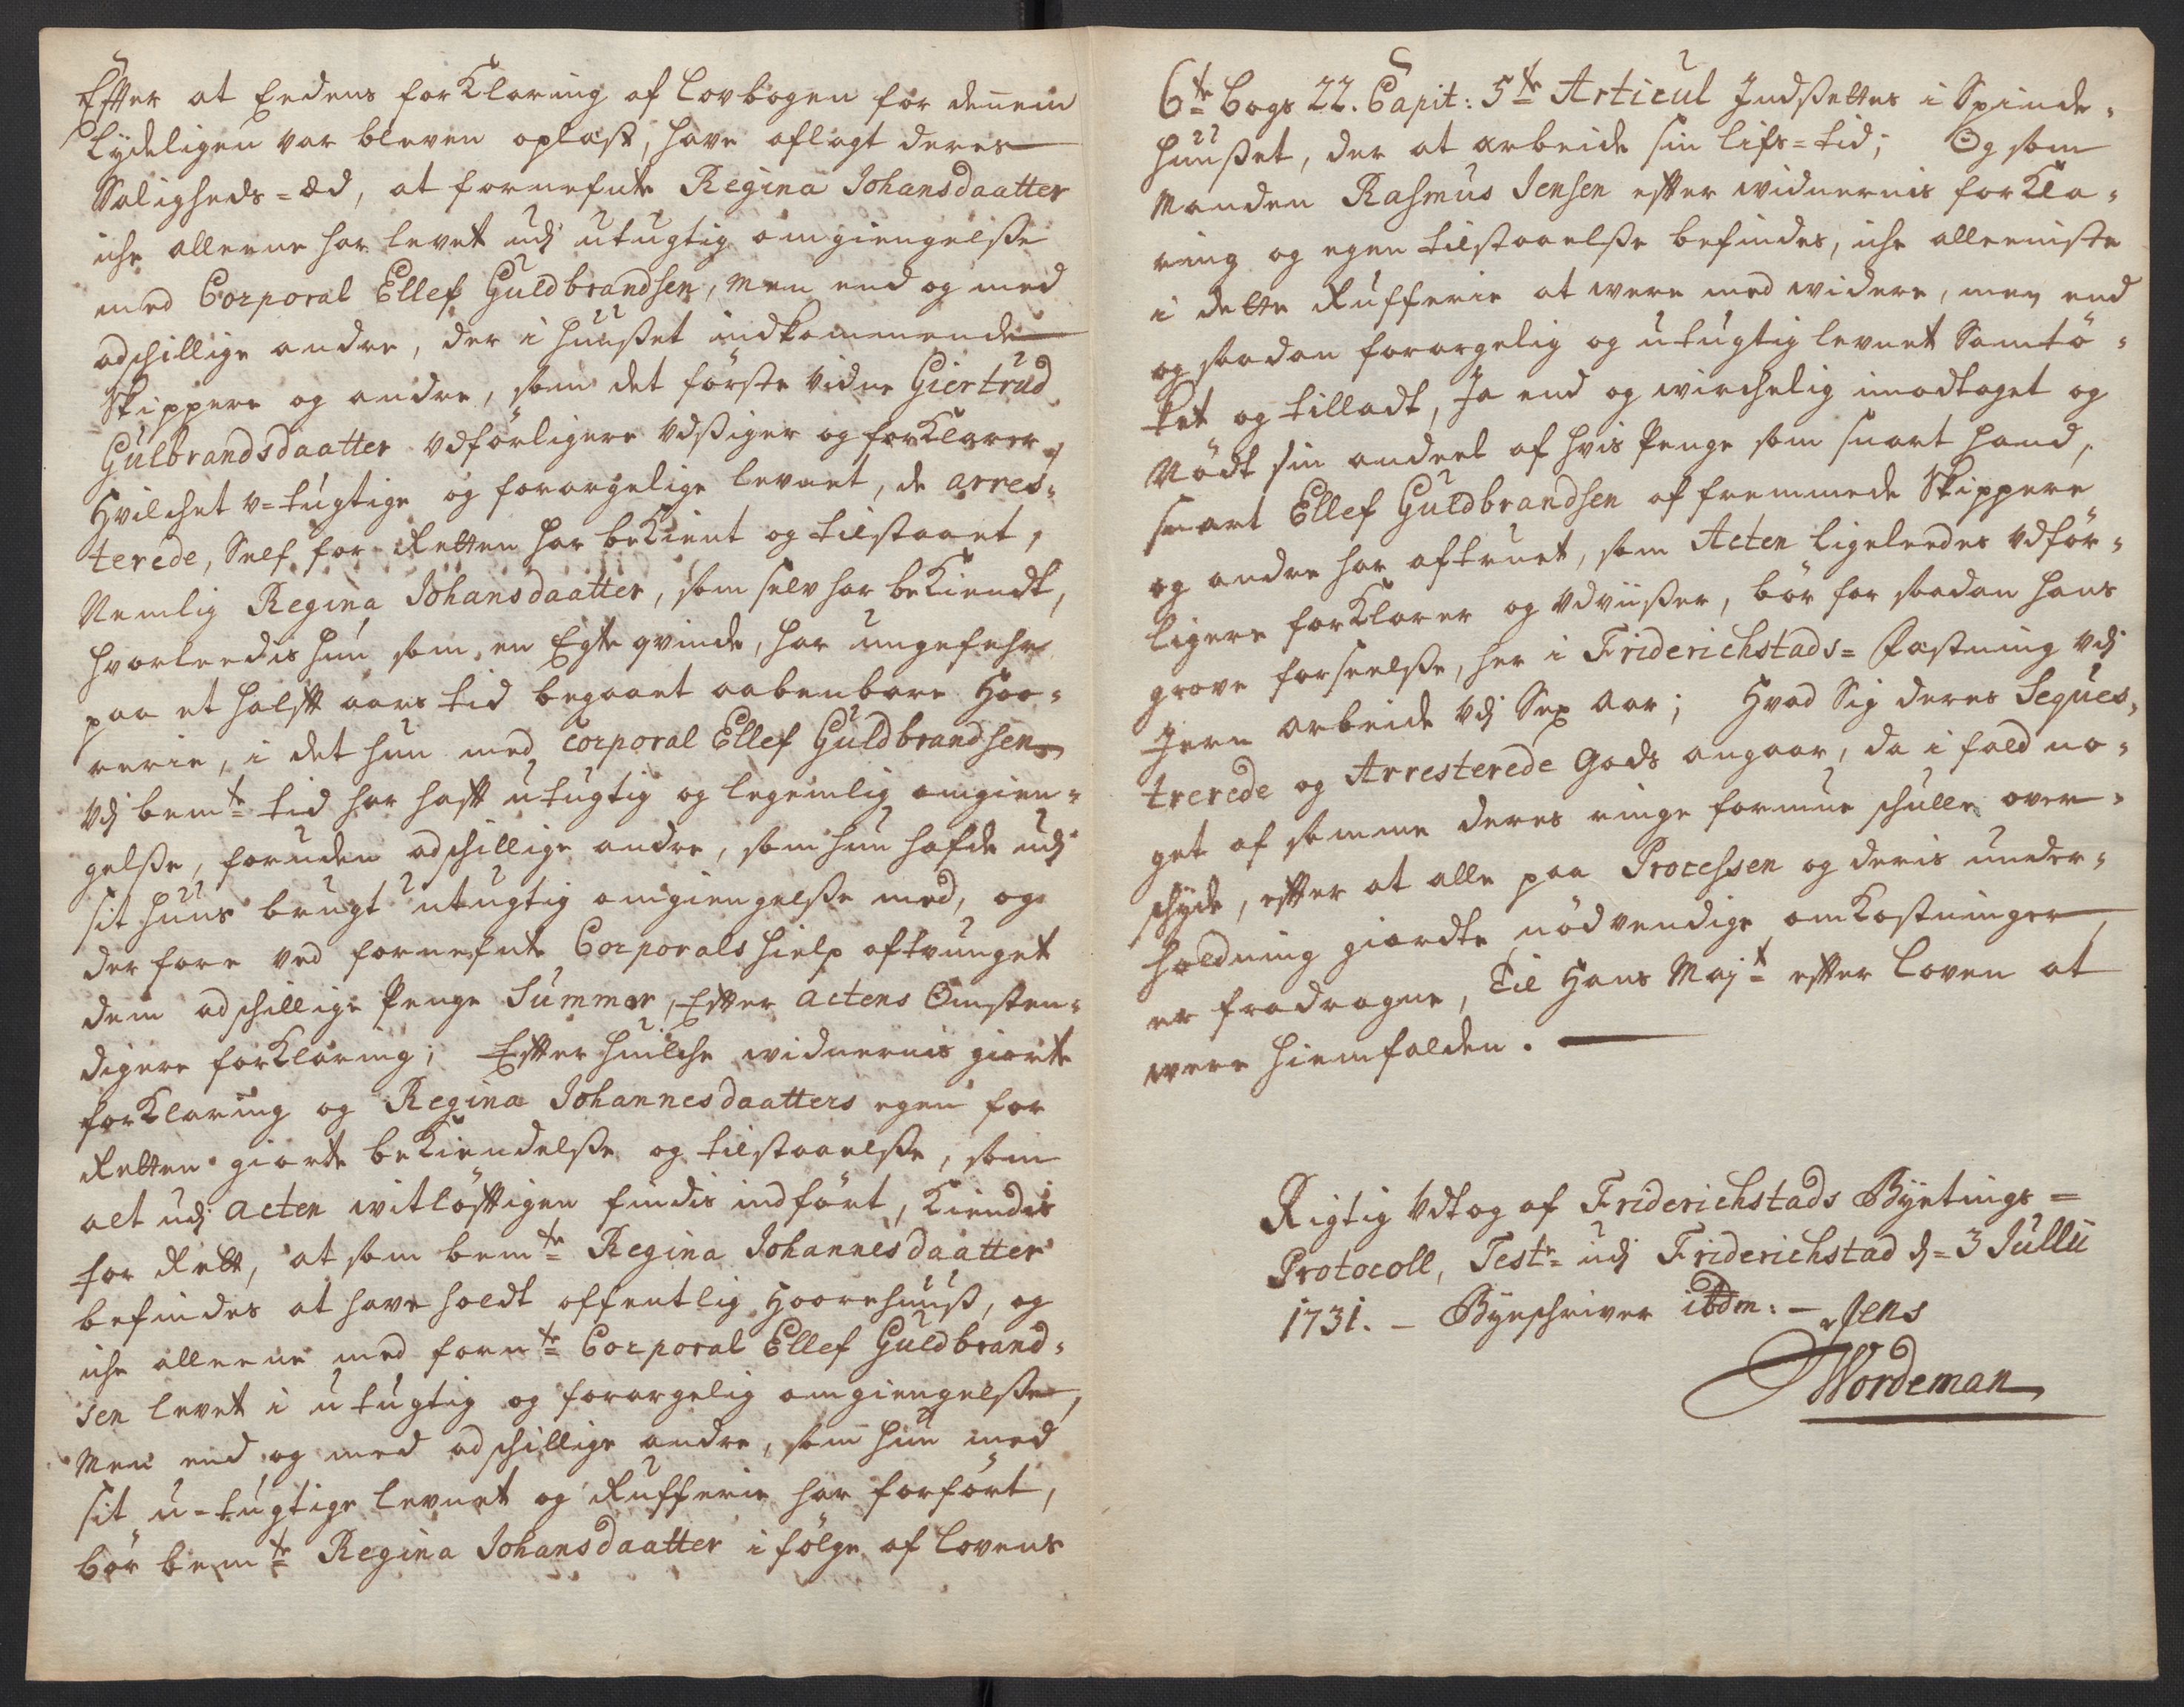 Efter at Eedens forKlaring af Lovbogen for dennem
lydeligen var bleven oplæst, have aflagt deres
Saligheds=Æd, at fornefnte Regina Johansdaatter
iche alleene har levet udj utugtig omgiengelsße
med Corporal Ellef Guldbrandsen, men end og med
adschillige andre, der i huußet indkommende
Skippere og andre, som det förste vidne Giertrud
Gulbrandsdaatter vdförligere vdsßiger og forKlarer,
Hvilchet v=tugtige og forargelige levnet, de arres=
terede, Self for Retten har beKient og tilstaaet,
Nemlig Regina Johansdaatter, som selv har beKiendt,
hvorleedis hun som en Egte qvinde, har ungefehr
paa et halft aars tid begaaet aabenbare Hoo=
rerie, i det hun med Corporal Ellef Guldbrandsen
vdj bemte tid har haft utugtig og legemlig omgien=
gelsße, foruden adschillige andre, som hun hafde udj
sit huus brugt utugtig omgiengelsße med, og
derfore ved fornefnte Corporals hielp aftvunget
dem adschillige Penge Summer, Efter actens Omsten=
digere forKlaring; Efter huilche widnernis giorte
forKlaring og Regina Johannesdaatters egen for
Retten giorte beKiendelsße og tilstaaelsße, som
alt udj acten witlöftigen findis indfört, Kiendis
for Rett, at som bemte Regina Johannesdaatter
befindes at have holdt offentlig Hoorehuuß, og
iche alleene med fornte Corporal Ellef Guldbrand=
sen levet i utugtig og forargelig omgiengelsße,
Men end og med adschillige andre, som hun med
sit u=tugtige levnet og Rufferie har forfört,
bör bemte Regina Johansdaatter ifölge af Lovens
6te Bogs 22. Capit: 5te Articul Indsßettes i Spinde=
huußet, der at arbeide sin lifs=tid; Og som
Manden Rasmus Jensen efter widnernis forKla=
ring og egen tilstaaelsße befindes, iche alleeniste
i dette Rufferie at were med widere, men end
og saadan forargelig og utugtig levnet Samtö=
ket og tilladt, Ja end og wirchelig imodtaget og
Nödt sin andeel af hvis Penge som snart hand,
snart Ellef Guldbrandsen af fremmede Skippere
og andre har aftruet, som Acten ligeleedes vdför=
ligere forKlarer og vdviisßer, bör for saadan hans
grove forseelsße, her i Friderichstads= Fæstning vdj
Jern arbeide vdj Sex Aar; Hvad Sig deres Seques=
trerede og Arresterede Gods angaar, da i fald no=
get af samme deres ringe formue schulle over=
schyde, efter at alle paa Processen og deris under=
holdning giordte nödvendige omKostninger,
er fradragne, Til Hans Mayt efter Loven at
were hiemfalden.
Rigtig vdtog af Friderichstads Byetings=
Protocoll, Teste udj Friderichstad d= 3 Jullii
1731. – Byeschriver ibdm: – Jens
Wordeman